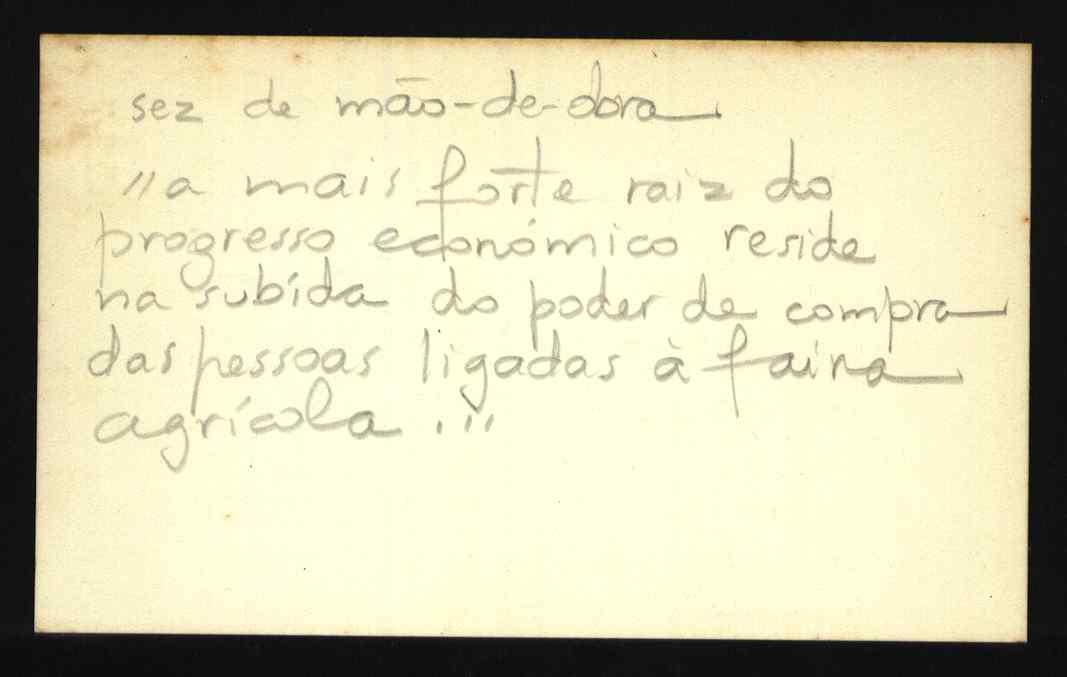 sez de mão-de-obra
"a mais forte raiz do
progresso económico reside
na subida do poder de compra
das pessoas ligadas à faina
agrícola."